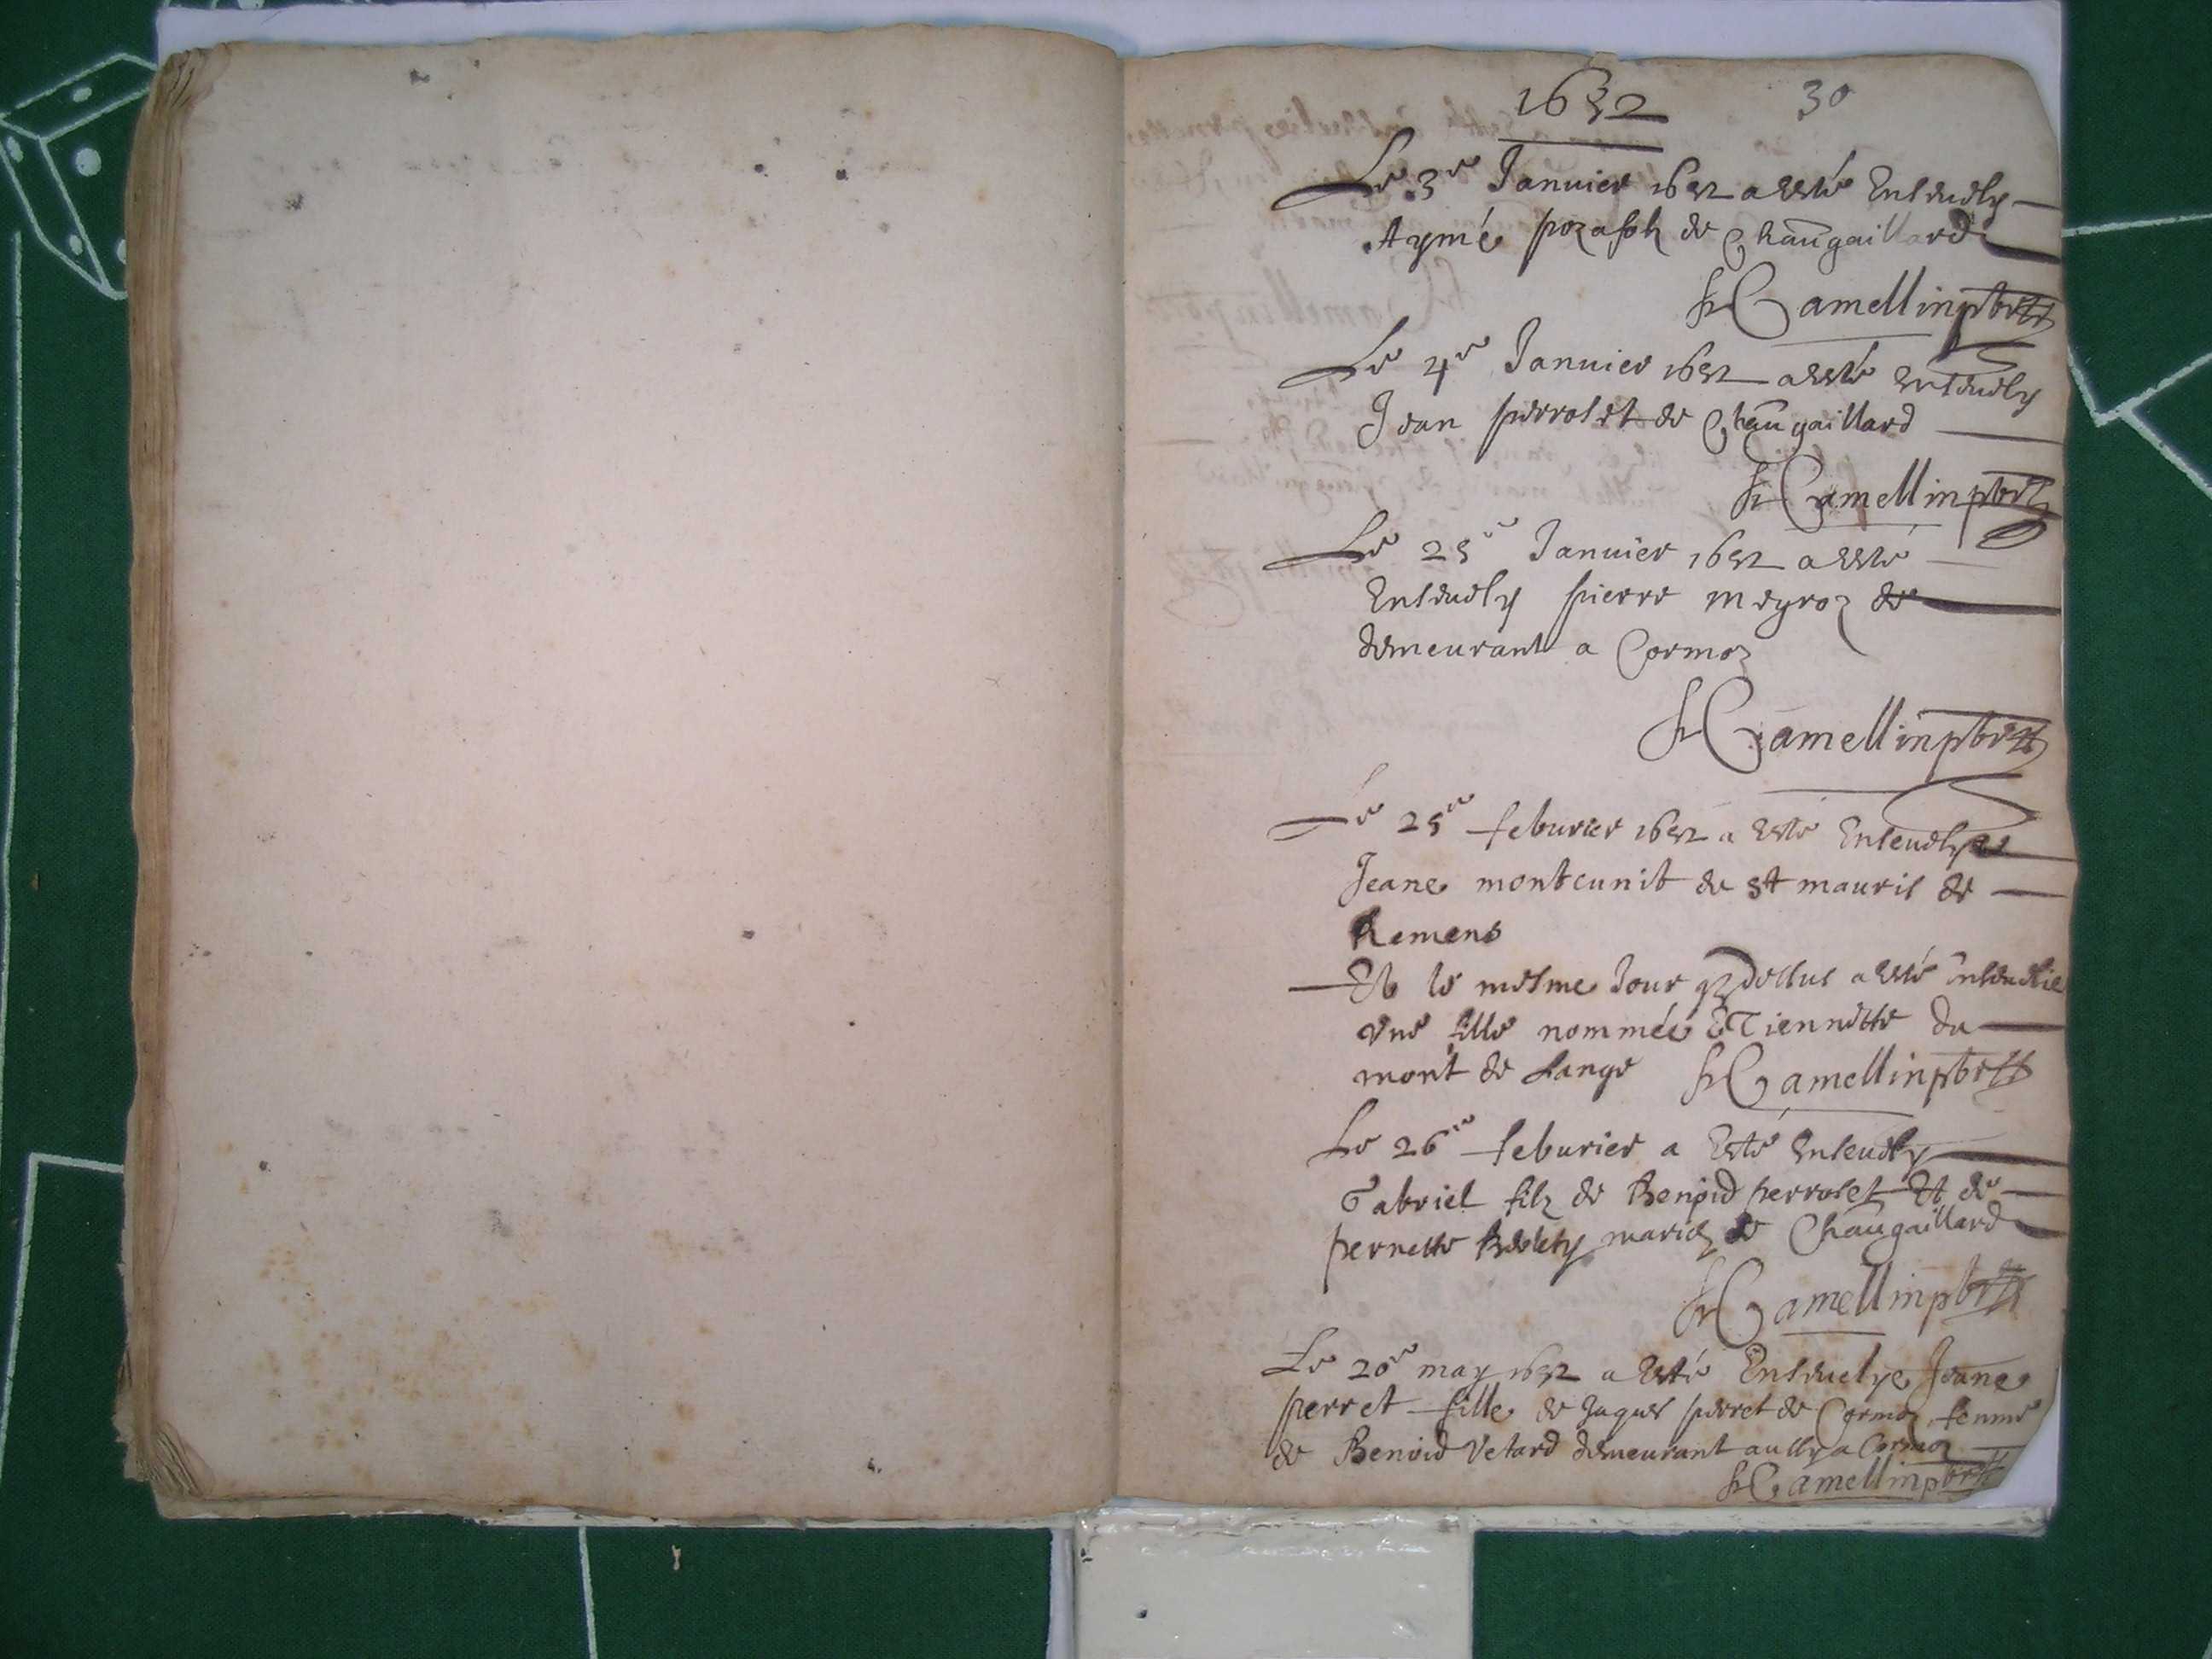 1652 30
Le 3e Januier 1652 a esté Enseuely
Aymé pozafol de Chaūgaillard
Camellin pbre
Le 4e Januier 1652 a esté enseuely
Jean perroset de Chaūgaillard
Camellin pbre
Le 25e Januier 1652 a esté
Enseuely pierre meyroz de
demeurant a Cormoz
Camellin pbre
Le 25e feburier 1652 a esté Enseuelye
Jeane montcunit de st mauris de
Remens
Et le mesme Jour dessus a esté enseuelie
vne fille nommée ETiennette du
mont de Lange Camellin pbre
Le 26e feburier a Esté enseuely
Gabriel filz de Benoid perroset Et de
pernette mariez de Chaūgaillard
Camellin pbre
Le 20e may 1652 a Esté Enseuelye Jeane
perret fille de Jaques perret de Cormoz femme
de Benoid Vetard demeurant aussy a Cormoz
Camellin pbre